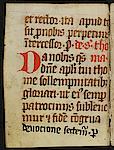 et rector ita apud te
sit p nobis perpetuus
intercessor. p. de s. tho
Da nobis qs
dne aplī tui tho
me sollempnitatibus
gloriari. ut ei semp
patrociniis subleue
mur & fide congrua
deuotione sectem p